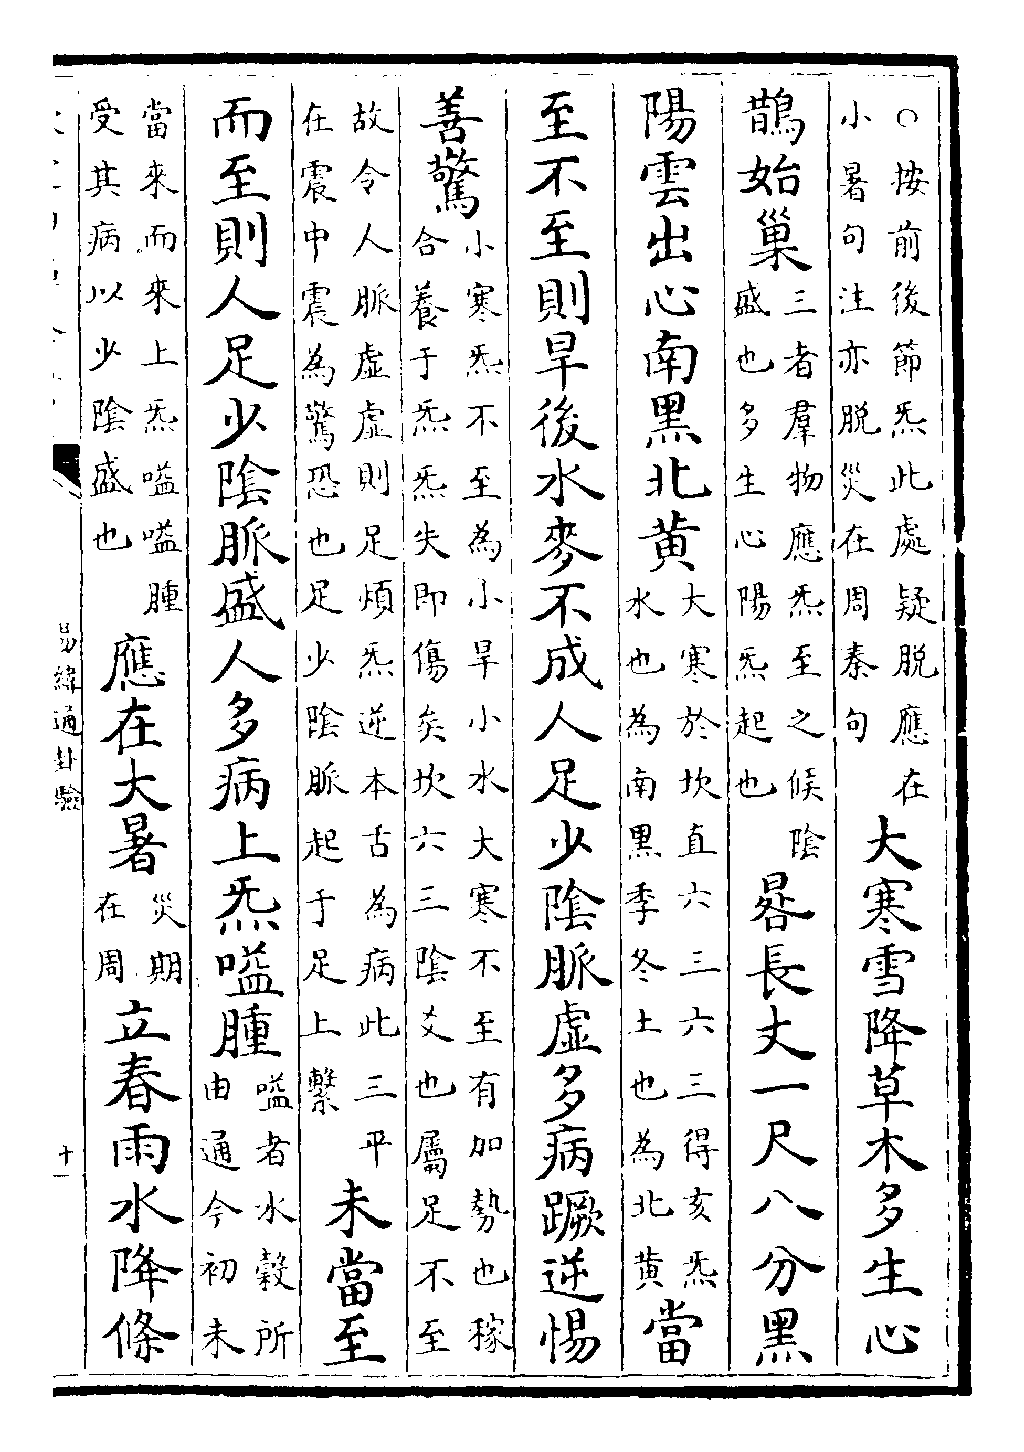 ○按前後節炁此處疑脱應在
小暑句注亦脱災在周秦句
大寒雪降草木多生心
鵲始巢
三者羣物應炁至之候陰
盛也多生心陽炁起也
晷長丈一尺八分黑
陽雲出心南黑北黄
大寒於坎直六三六三得亥炁
水也為南黑季冬土也為北黄
當
至不至則旱後水麥不成人足少陰脈虚多病蹶逆惕
善驚
小寒炁不至為小旱小水大寒不至有加勢也稼
合養于炁炁失即傷矣坎六三陰爻也屬足不至
故令人脈虚虚則足煩炁逆本舌為病此三平
在震中震為驚恐也足少陰脈起于足上繫
未當至
而至則人足少陰脈盛人多病上炁嗌腫
嗌者水穀所
由通今初未
當來而來上炁嗌嗌腫
受其病以少陰盛也
應在大暑
災期
在周
立春雨水降條
易緯通卦驗
十一